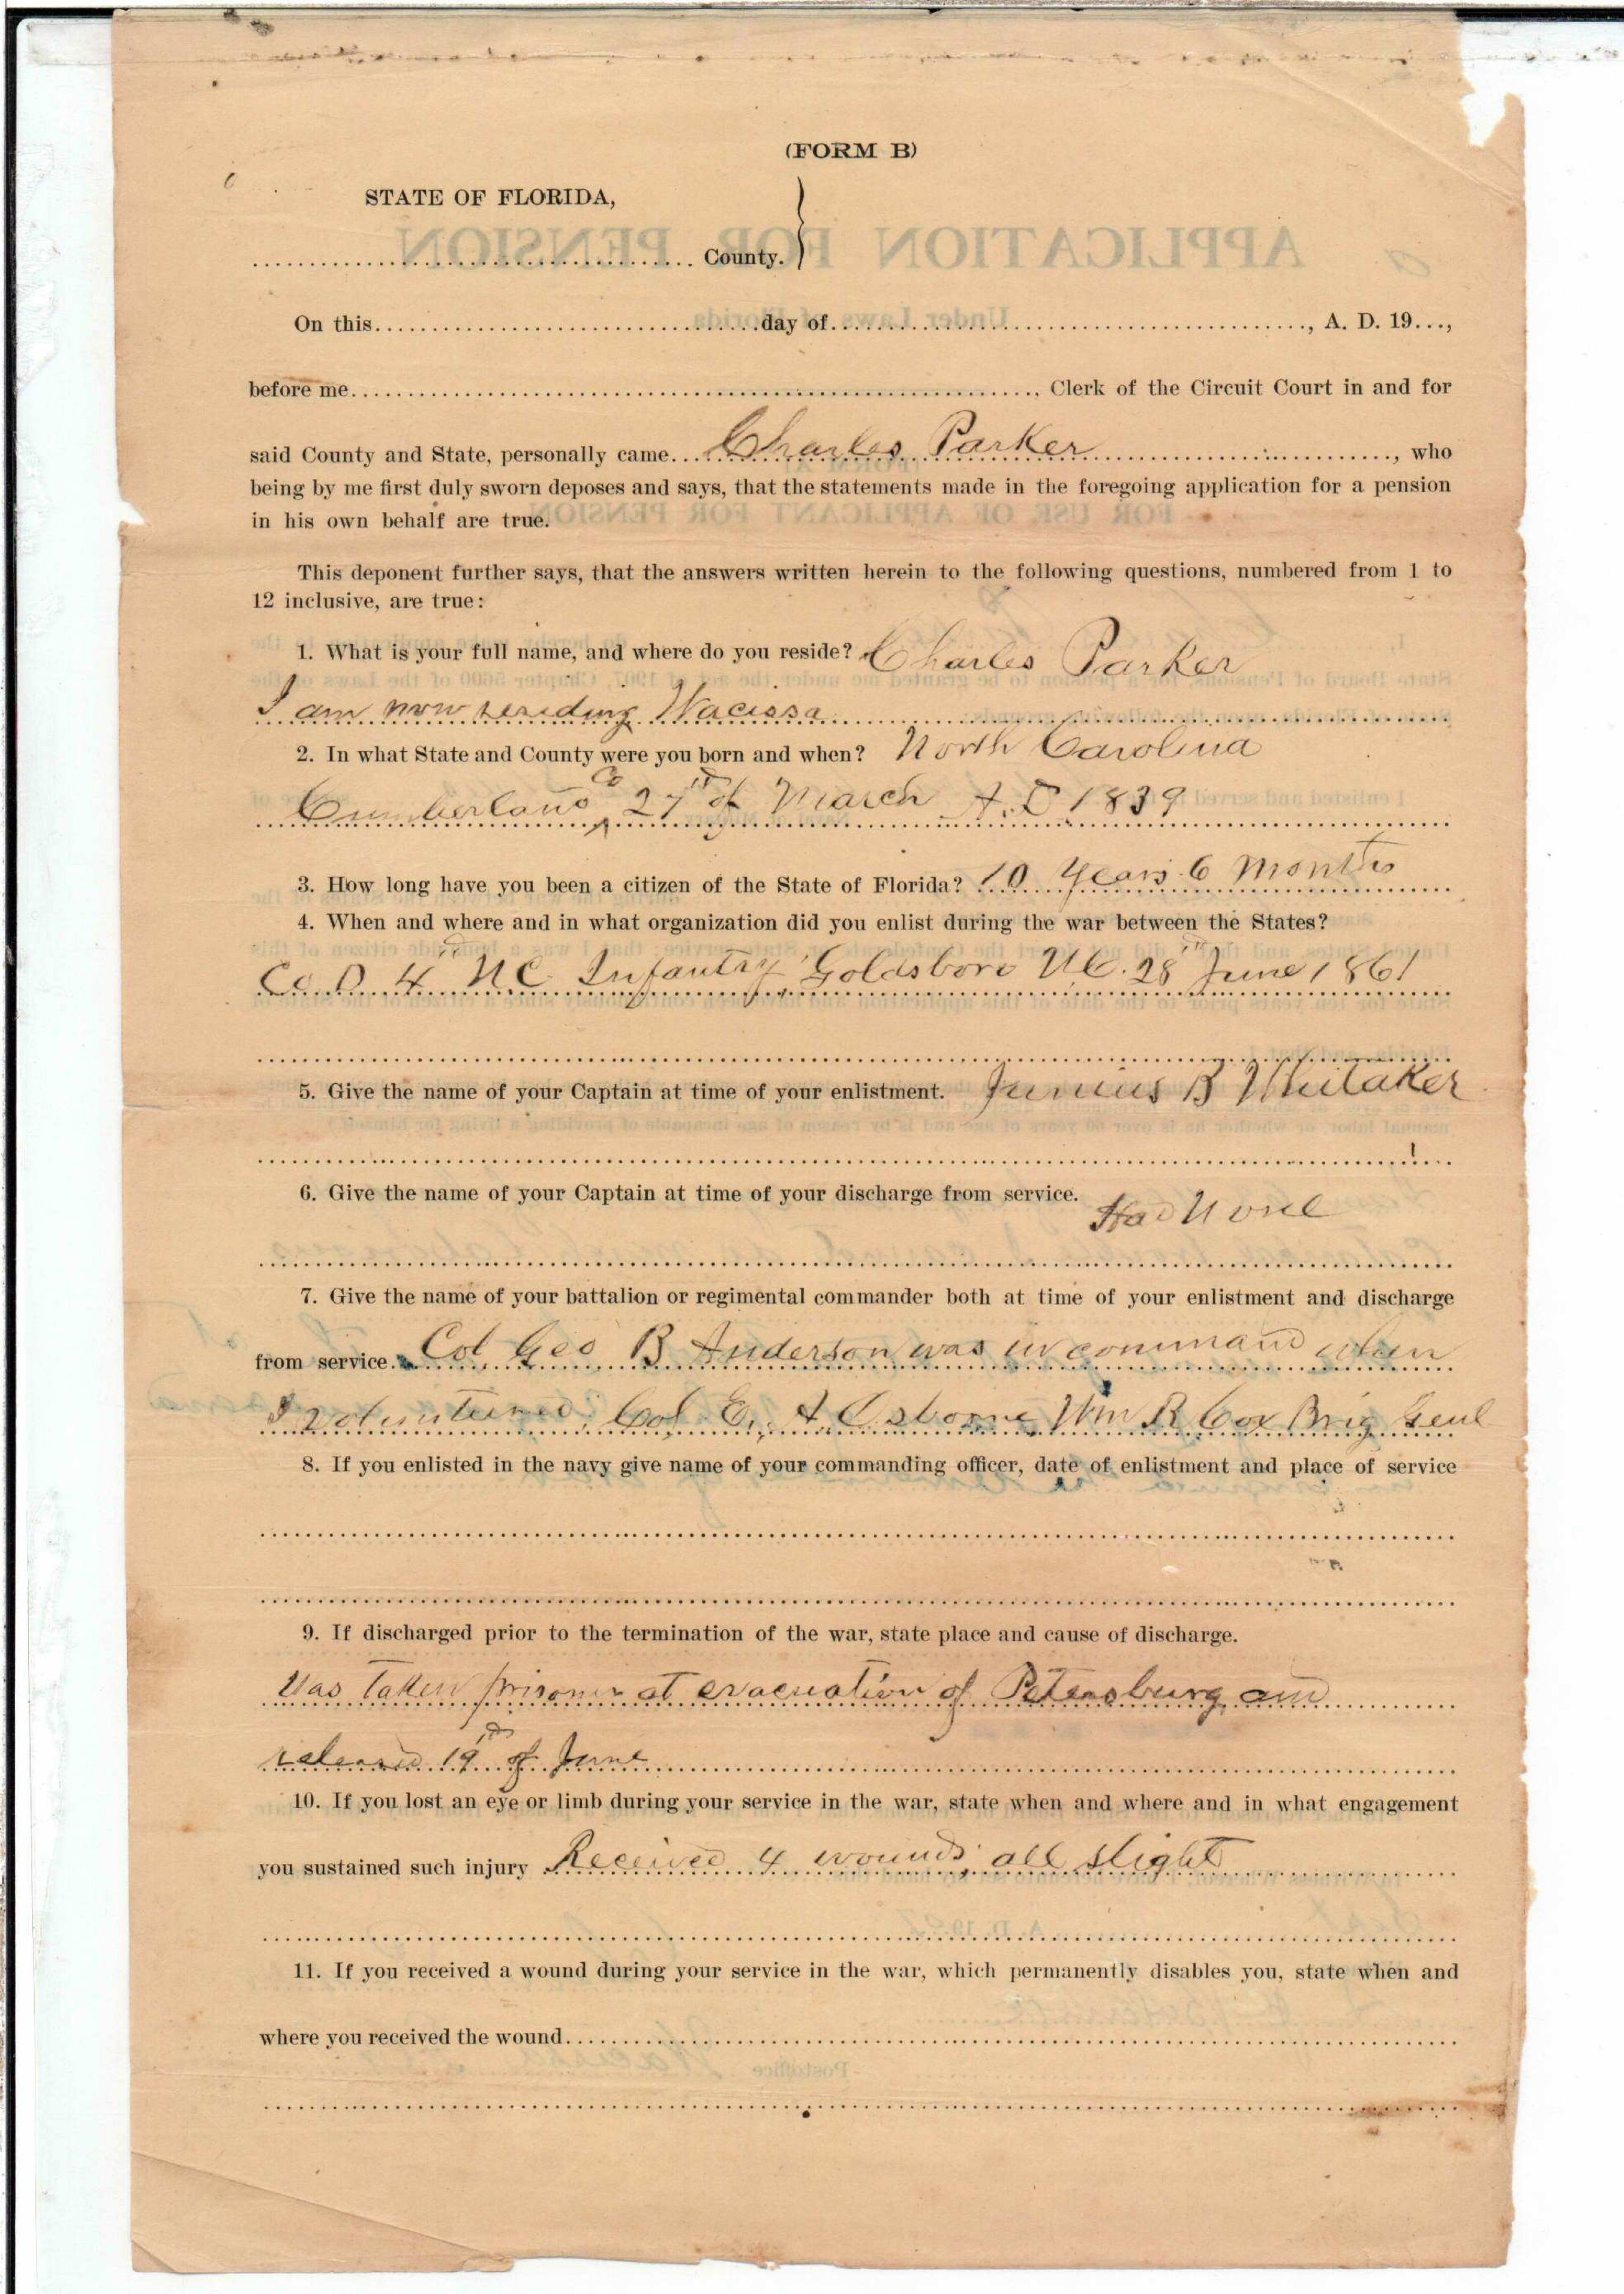 (FORM B)
STATE OF FLORIDA,
........ County.
On this........day of........, A. D. 19...,
before me........, Clerk of the Circuit Court in and for
said County and State, personally came...Charles Parker........, who
being by me first duly sworn deposes and says, that the statements made in the foregoing application for a pension
in his own behalf are true.
This deponent further says, that the answers written herein to the following questions, numbered from 1 to
12 inclusive, are true:
1. What is your full name, and where do you reside? Charles Parker
I am now residing Wacissa
2. In what State and County were you born and when? North Carolina
Cumberland Co 27th of March A.D 1839
3. How long have you been a citizen of the State of Florida? 10 Years 6 Months
4. When and where and in what organization did you enlist during the war between the States?
Co. D 4th NC Infantry, Goldsboro NC. 28th June 1861
5. Give the name of your Captain at time of your enlistment. Junius B Whitaker
6. Give the name of your Captain at time of your discharge from service.
Had None
7. Give the name of your battalion or regimental commander both at time of your enlistment and discharge
from service. Col. Geo B Anderson was in command when
I volunteered, Col. E. A. Osborne Wm R Cox Brig Genl
8. If you enlisted in the navy give name of your commanding officer, date of enlistment and place of service
9. If discharged prior to the termination of the war, state place and cause of discharge.
Was taken prisoner at evacuation of Petersburg and
released 19th of June
10. If you lost an eye or limb during your service in the war, state when and where and in what engagement
you sustained such injury Received 4 wounds, all slight
11. If you received a wound during your service in the war, which permanently disables you, state when and
where you received the wound........